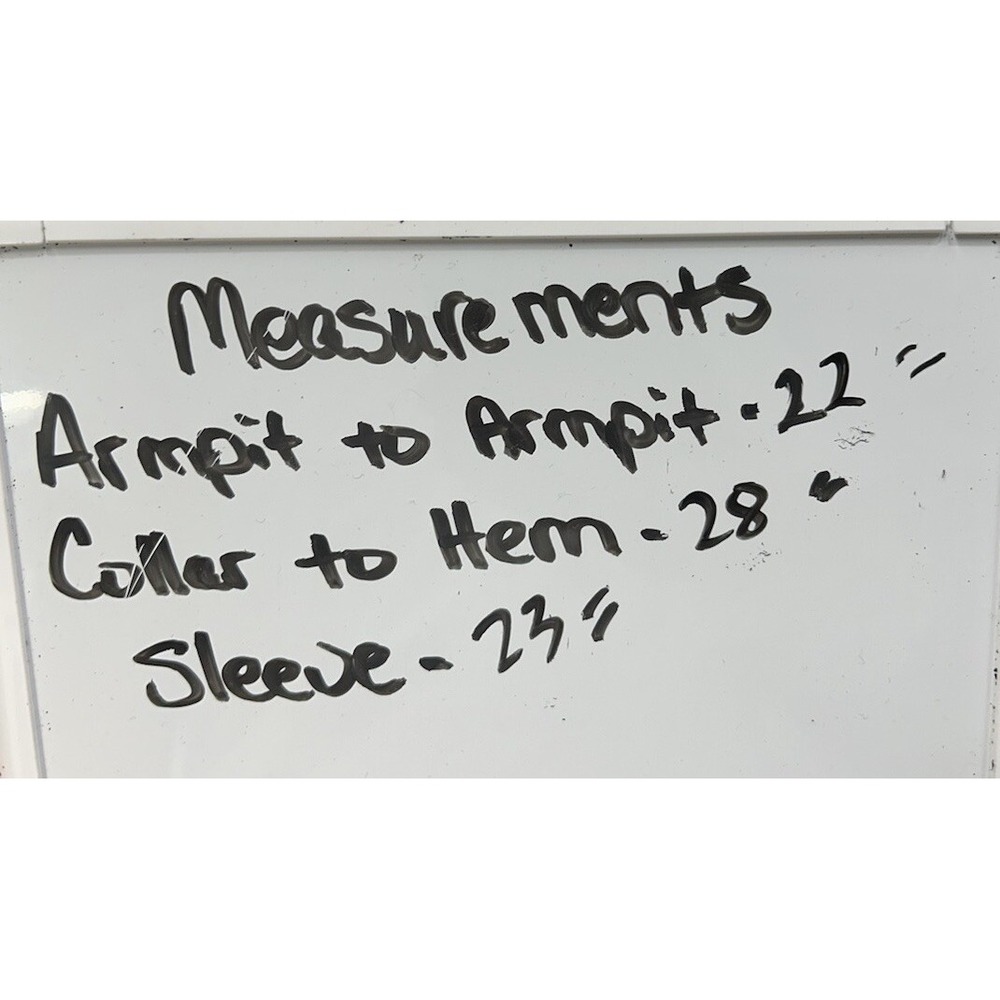 Measurements
Armpit to Armpit - 22"
Collar to Hem - 28"
Sleeve - 23"